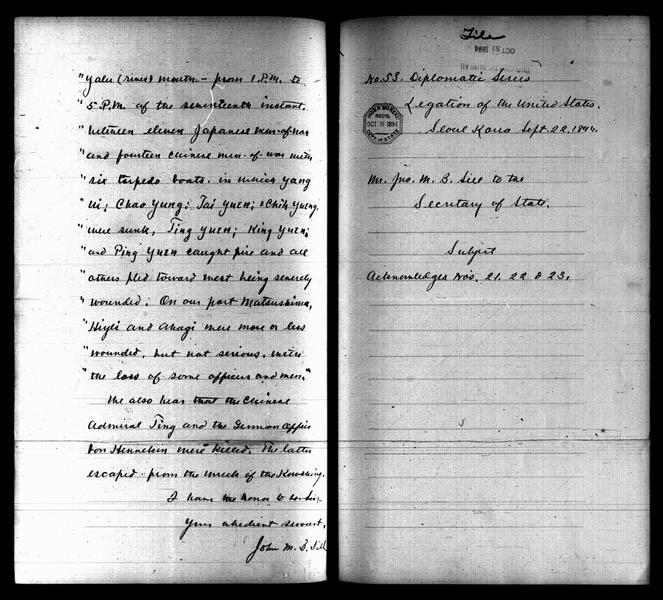 "Yalu (river) mouth - from 1 P.M. to
"5 P.M. of the seventeenth instant.
"between eleven Japanese men-of-war
"and fourteen Chinese men-of-war with
"six torpedo boats, in which Yang
"Wi; Chao Yung; Tai Yuen; & Chih Yueng,
"were sunk, Ting Yuen; King Yuen;
"and Ping Yuen caught fire and all
"others fled toward west being severely
"wounded; On our part Matsushima,
"Hiyei and Akagi were more or less
"wounded, but not serious, with
"the loss of some officers and men."
We also hear that the Chinese
Admiral Ting and the German Officer
von Hanneken were killed. The latter
escaped from the wreck of the Kowshing.
I have the honor to be Sir:
Your obedient servant,
John M. B. Sill
File
OCT 31 1894
No. 53. Diplomatic Series
Legation of the United States.
Seoul Korea Sept. 22. 1894.
INDEX BUREAU
REC'D.
OCT 31 1894
DEPT. OF STATE
Mr. Jno. M. B. Sill to the
Secretary of State.
Subject
Acknowledges Nos. 21. 22 & 23.